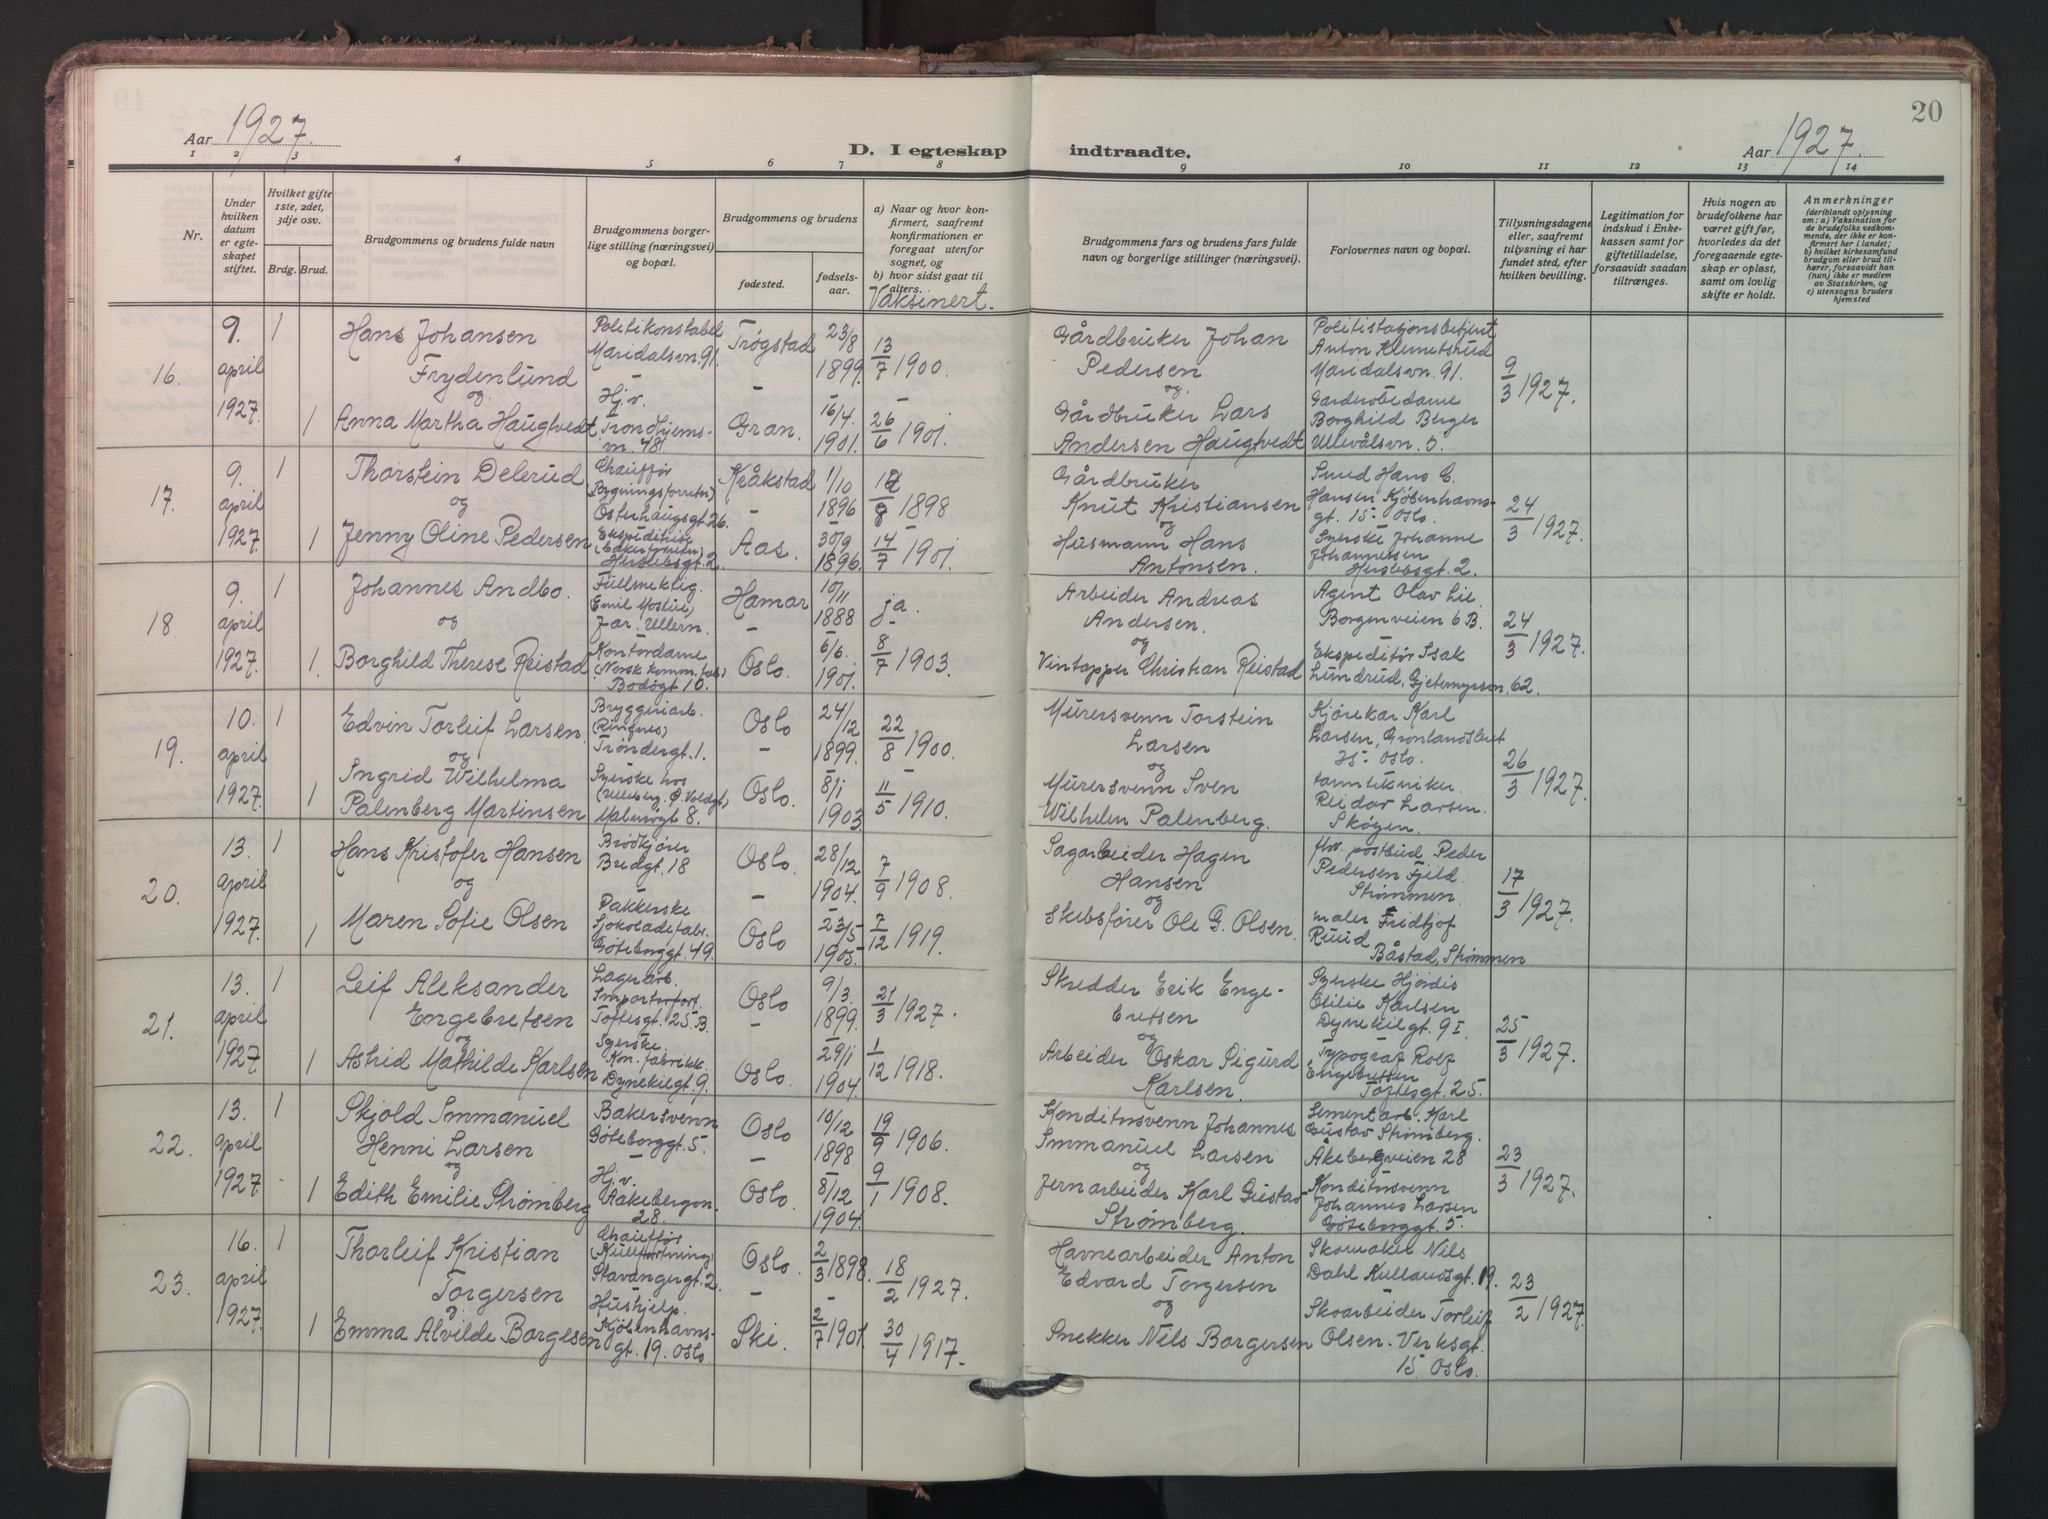 20
Aar 1927.
D. I egteskap indtraadte.
Aar 1927.
1 2 3 4 5 6 7 8 9 10 11 12 13 14
Nr.
Under hvilken datum er egteskapet stiftet.
Hvilket gifte 1ste, 2det, 3dje osv.
Brdg. Brud.
Brudgommens og brudens fulde navn
Brudgommens borgerlige stilling (næringsvei) og bopæl.
Brudgommens og brudens
fødested.
fødselsaar.
a) Naar og hvor konfirmert, saafremt konfirmationen er foregaat utenfor sognet, og
b) hvor sidst gaat til alters.
Vaksinert.
Brudgommens fars og brudens fars fulde navn og borgerlige stillinger (næringsvei).
Forlovernes navn og bopæl.
Tillysningsdagene eller, saafremt tillysning ei har fundet sted, efter hvilken bevilling.
Legitimation for indskud i Enkekassen samt for giftetilladelse, forsaavidt saadan tiltrænges.
Hvis nogen av brudefolkene har været gift før, hvorledes da det foregaaende egteskap er opløst, samt om lovlig skifte er holdt.
Anmerkninger
(deriblandt oplysning om: a) Vaksination for de brudefolks vedkommende, der ikke er konfirmert her i landet; b) hvilket kirkesamfund brudgom eller brud tilhører, forsaavidt han (hun) ikke er medlem av Statskirken, og c) utensogns bruders hjemsted
16.
9. april 1927.
1
Hans Johansen
Frydenlund
og
1 Anna Martha Haugtvedt
Politikonstabel
Maridalsvn. 91.
Hj.v.
Trondhjemsvn. 48
Trøgstad
Gran.
23/8 1899.
16/4. 1901.
13/7 1900.
26/6 1901.
Gårdbruker Johan
Pedersen
og
Gårdbruker Lars
Andersen Haugtvedt
Politistasjonsbetjent
Anton Klemetsrud
Maridalsvn. 91.
Garderobedame
Borghild Berger
Ullevålsvn. 5.
9/3 1927.
17.
9. april 1927.
1
Thorstein Delerud
og
1 Jenny Oline Pedersen
Chauffør
(Bygningsforretn)
Osterhaugsgt. 26.
Ekspeditrise
Herslebsgt. 2.
Kråkstad
Aas.
1/10 1896
30/9 1896.
1898
14/7 1901.
Gårdbruker
Knut Kristiansen
og
Husmann Hans
Antonsen.
Smed Hans E.
Hansen Kjøbenhavnsgt. 15 Oslo.
Syerske Johanne
Johannessen
Herslebsgt. 2.
24/3 1927.
18
9. april 1927.
1
Johannes Andbo.
og
1. Borghild Therese Reistad
Fullmektig.
Jar. Ullern.
Kontordame
Bodøgt 10.
Hamar
Oslo.
10/11 1888
6/6. 1901.
ja.
8/7 1903
Arbeider Andreas
Andersen.
og
Vintapper Christian Reistad
Agent Olav Lie.
Borgenveien 6 B.
Ekspeditør Isak
Lundrud, Gjetemyrsvn. 62.
24/3 1927.
19.
10. april 1927.
1
Edvin Torleif Larsen
og
1 Ingrid Wilhelma
Palenberg Martinsen
Bryggeriarb.
(Ringnes)
Trøndergt. 1.
Syerske hos
Malmøgt 8.
Oslo
Oslo.
24/12 1899.
8/1 1903.
22/8 1900.
11/5 1910.
Murersvenn Torstein
Larsen
og
Murersvenn Sven
Wilhelm Palenberg.
Kjørekar Karl
Larsen, Grønlandsleret
Oslo.
tanntekniker
Reidar Larsen.
Skøyen.
26/3 1927.
20.
13. april 1927.
1
Hans Kristofer Hansen
og
1 Maren Sofie Olsen
Brødkjører
Bredgt. 18
Pakkerske
Sjokoladefabr.
Göteborggt. 49.
Oslo
Oslo
28/12 1904.
23/5 1905.
7/9 1908.
7/12 1919.
Sagarbeider Hagen
Hansen
og
Skibsfører Ole G. Olsen.
fhv. postbud Peder
Pedersen Fjeld.
Strømmen.
maler Fridtjof
Ruud
Båstad, Strømmen
17/3 1927.
21.
13. april 1927.
1
Leif Aleksander
Engebretsen
og
1 Astrid Mathilde Karlsen
Lagerarb.
Importørforr.
Toftesgt. 25 B.
Syerske.
Kon. fabrikk.
Dynekilgt. 9.
Oslo
Oslo.
9/3. 1899.
29/1 1904.
21/3 1927.
1/12 1918.
Skredder Erik Engebretsen
og
Arbeider Oskar Sigurd
Karlsen.
Syerske Hjørdis
Otilie Karlsen
Dynekilgt. 9 I
Typograf Rolf
Engebretsen
Toftesgt. 25.
25/3 1927.
22.
13. april 1927
1
Skjold Immanuel
Henni Larsen
og
1 Edith Emilie Strømberg
Bakersvenn
Göteborggt. 5.
Hj.v.
Aakebergvn.
28.
Oslo
Oslo.
10/12 1898
8/12 1904.
19/9 1906.
9/1 1908.
Konditorsvenn Johannes
Immanuel Larsen
og
Jernarbeider Karl Gustav
Strømberg.
Sementarb. Karl
Gustav Strømberg.
Åkebergveien 28
Konditorsvenn
Johannes Larsen
Göteborggt. 5.
23/3 1927.
23.
16. april 1927.
1
Thorleif Kristian
Torgersen
og
1 Emma Alvilde Borgesen
Chauffør
(Kullforretning)
Stavangergt. 2.
Hushjelp.
Kjøbenhavnsgt. 19. Oslo.
Oslo.
Ski.
2/3 1898.
2/7 1901.
18/2 1927.
30/4 1917.
Havnearbeider Anton
Edvard Torgersen
og
Snekker Nils Borgersen
Skomaker Nils
Dahl Kullandsgt. 19.
Skoarbeider Torleif
Olsen. Verksgt.
15. Oslo.
23/2 1927.